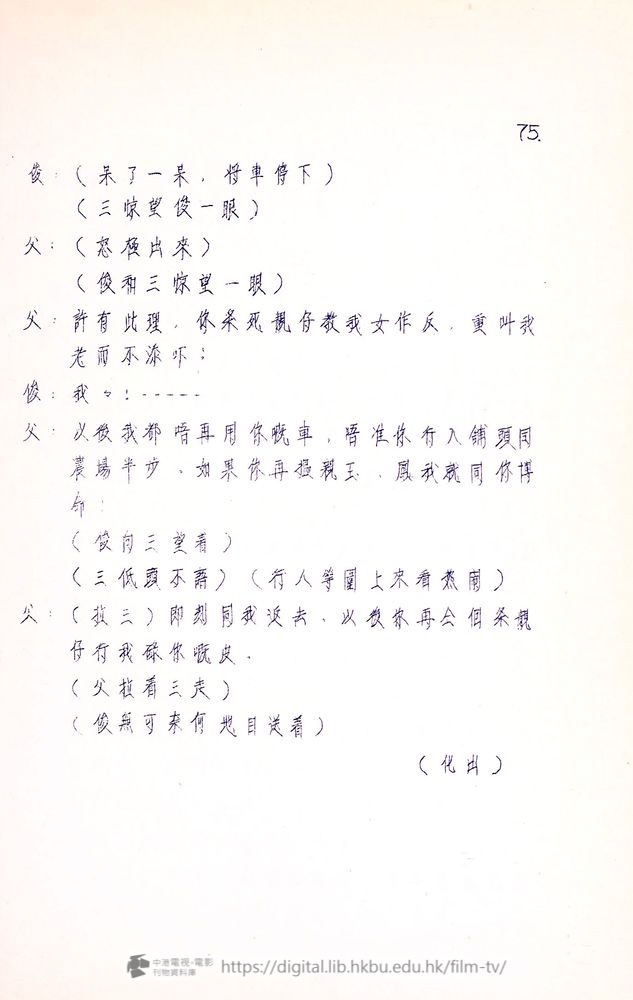 75.
俊:(呆了一呆,將車停下)
(三惊望俊一眼)
父:(怒極出來)
(俊和三惊望一眼)
父:許有此理,你条死靚仔教我女作反,重叫我
老而不添吓;
俊:我々!-----
父:以後我都唔再用你嘅車,唔准你行入鋪頭同
農場半步、如果你再搵親玉、鳳我就同你博
命!
(俊向三望着)
(三低頭不語)(行人等圍上來看熱鬧)
父:(拉三)即刻同我返去、以後你再会個条靚
仔行我碌你嘅皮、
(父拉着三走)
(俊無可奈何地目送着)
(化出)
中港電視·電影
刊物資料庫
https://digital.lib.hkbu.edu.hk/film-tv/